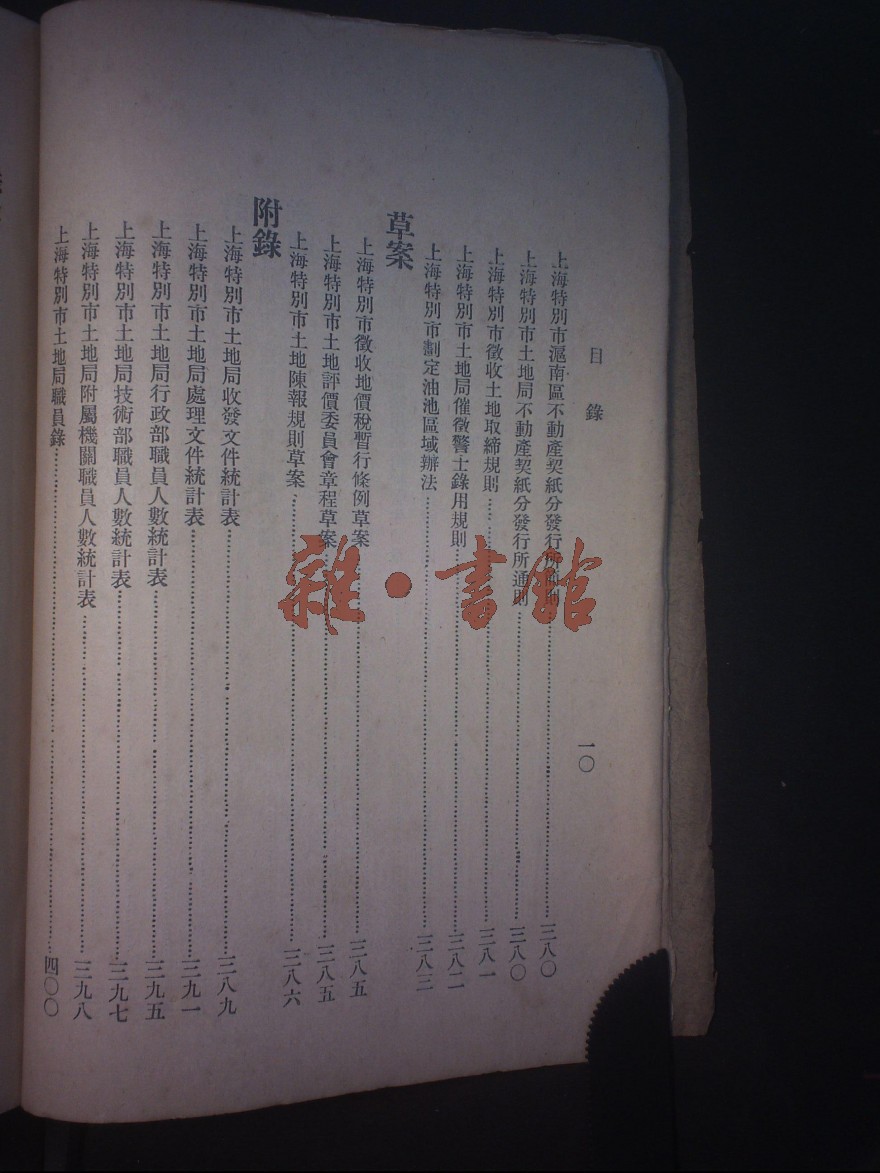 目錄
一〇
上海特別市滬南區不動產契紙分發行所細則……三八〇
上海特別市土地局不動產契紙分發行所通則……三八〇
上海特別市徵收土地取締規則……三八一
上海特別市土地局催徵警士錄用規則……三八二
上海特別市劃定油池區域辦法……三八三
草案
上海特別市徵收地價稅暫行條例草案……三八五
上海特別市土地評價委員會章程草案……三八五
上海特別市土地陳報規則草案……三八六
附錄
上海特別市土地局收發文件統計表……三八九
上海特別市土地局處理文件統計表……三九一
上海特別市土地局行政部職員人數統計表……三九五
上海特別市土地局技術部職員人數統計表……三九七
上海特別市土地局附屬機關職員人數統計表……三九八
上海特別市土地局職員錄……四〇〇
雜·書館